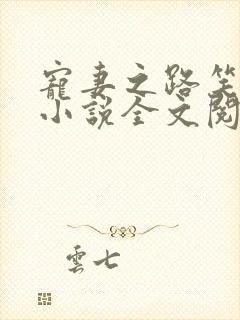 寵妻之路笑
小說全文閱
雲七